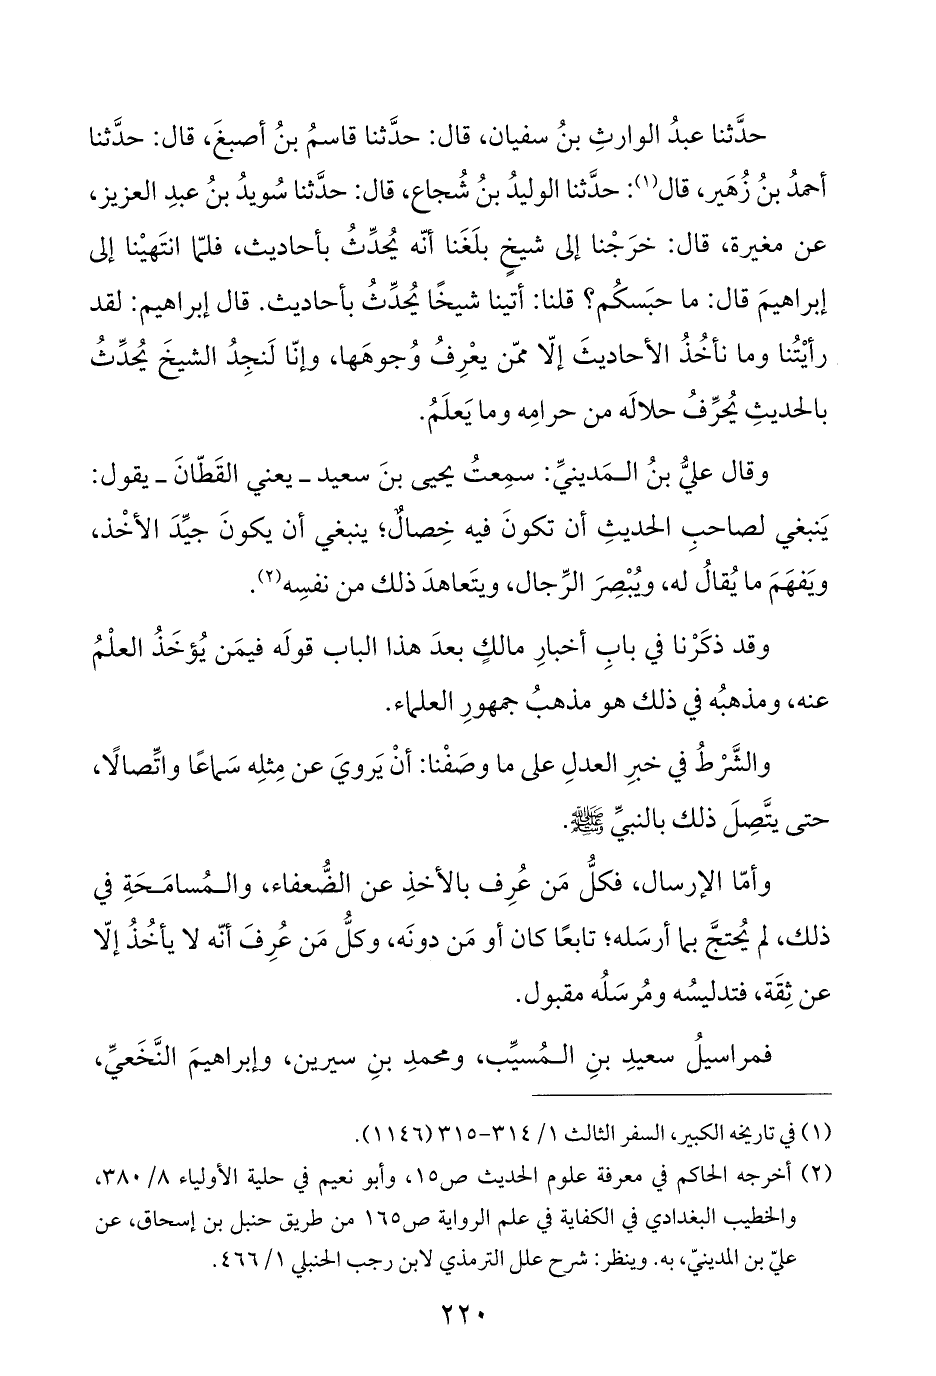 حدَّثنا عبدُ الوارثِ بنُ سفيان، قال: حدَّثنا قاسمُ بنُ أصبغَ، قال: حدَّثنا
أحمدُ بنُ زُهَير، قال(١): حدَّثنا الوليدُ بنُ شُجاع، قال: حدَّثنا سُويدُ بنُ عبدِ العزيز،
عن مغيرة، قال: خرَجْنا إلى شيخٍ بلَغَنا أنّه يُحدِّثُ بأحاديث، فلمّا انتَهيْنا إلى
إبراهيمَ قال: ما حبَسكُم؟ قلنا: أتينا شيخًا يُحدِّثُ بأحاديث. قال إبراهيم: لقد
رأيْتُنا وما نأخُذُ الأحاديثَ إلّا ممّن يعْرِفُ وُجوهَها، وإنّا لَنجِدُ الشيخَ يُحدِّثُ
بالحديثِ يُحرِّفُ حلالَه من حرامِه وما يَعلَمُ.
وقال عليُّ بنُ المَدينيِّ: سمِعتُ يحيى بنَ سعيد ـ يعني القَطّانَ ـ يقول:
يَنبغي لصاحبِ الحديثِ أن تكونَ فيه خِصالٌ؛ ينبغي أن يكونَ جيِّدَ الأخْذ،
ويَفهَمَ ما يُقالُ له، ويُبْصِرَ الرِّجال، ويتَعاهدَ ذلك من نفسِه(٢).
وقد ذكَرْنا في بابِ أخبارِ مالكٍ بعدَ هذا الباب قولَه فيمَن يُؤخَذُ العلْمُ
عنه، ومذهبُه في ذلك هو مذهبُ جمهورِ العلماء.
والشَّرْطُ في خبرِ العدلِ على ما وصَفْنا: أنْ يَرويَ عن مِثلِه سَماعًا واتِّصالًا،
حتى يتَّصِلَ ذلك بالنبيِّ ﷺ.
وأمّا الإرسال، فكلُّ مَن عُرِف بالأخذِ عن الضُّعفاء، والمُسامَحَةِ في
ذلك، لم يُحتجَّ بما أرسَله؛ تابعًا كان أو مَن دونَه، وكلُّ مَن عُرِفَ أنّه لا يأخُذُ إلّا
عن ثِقَة، فتدليسُه ومُرسَلُه مقبول.
فمراسيلُ سعيدِ بنِ المُسيِّب، ومحمدِ بنِ سيرين، وإبراهيمَ النَّخَعيِّ،
(١) في تاريخه الكبير، السفر الثالث ١/ ٣١٤-٣١٥ (١١٤٦).
(٢) أخرجه الحاكم في معرفة علوم الحديث ص١٥، وأبو نعيم في حلية الأولياء ٨/ ٣٨٠،
والخطيب البغدادي في الكفاية في علم الرواية ص١٦٥ من طريق حنبل بن إسحاق، عن
عليّ بن المدينيّ، به. وينظر: شرح علل الترمذي لابن رجب الحنبلي ١/ ٤٦٦.
٢٢٠